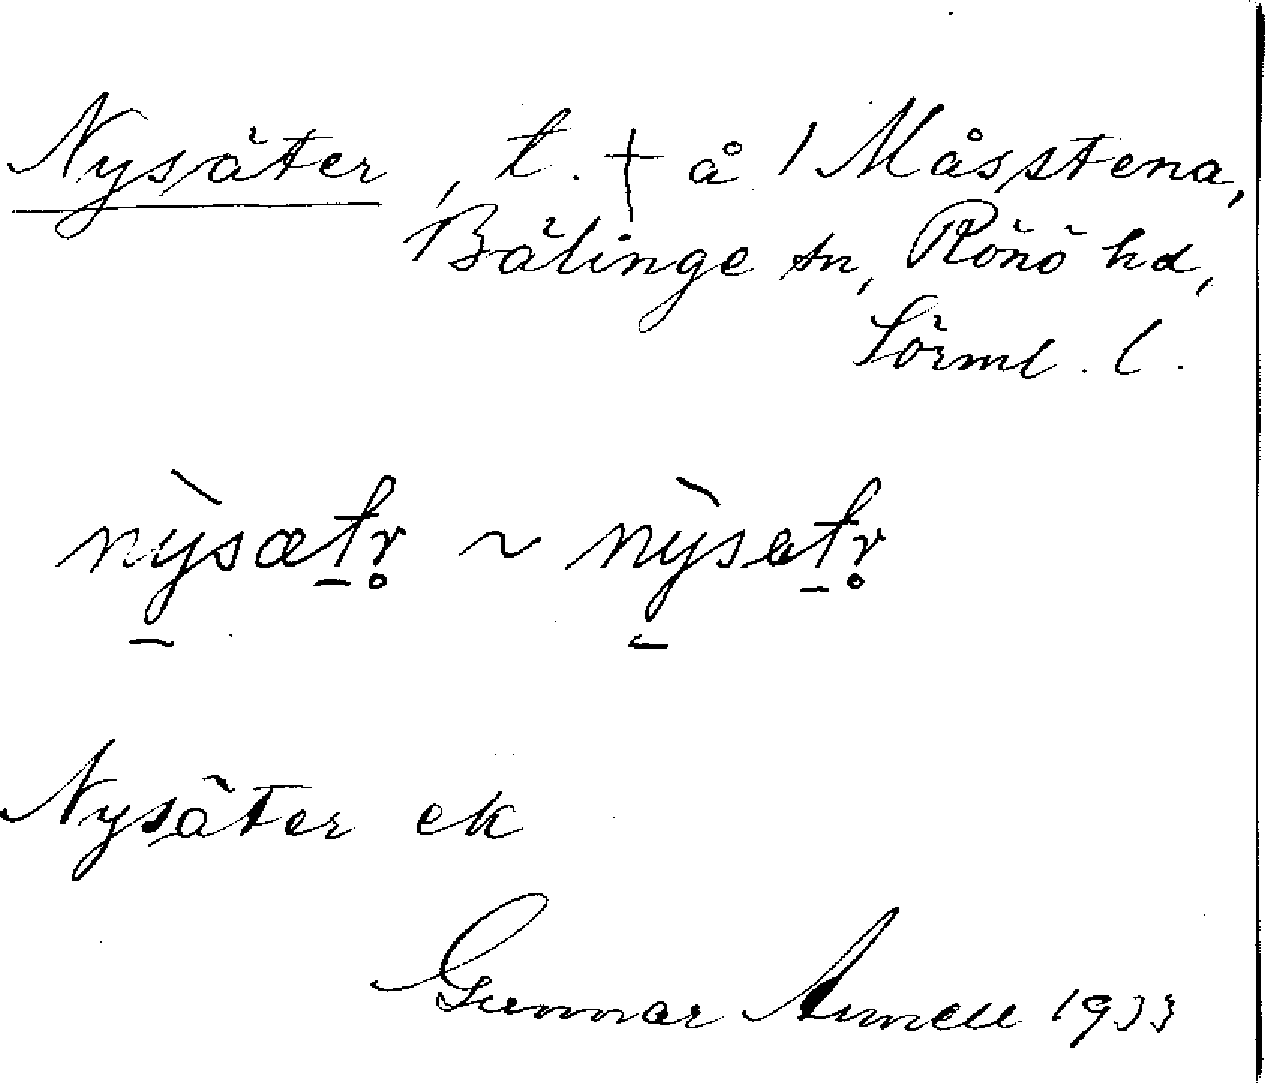 Nysäter, t. † å 1 Måsstena,
Bälinge sn, Rönö hd,
Sörml. l.
nỳsætr̥ ~ nỳsetr̥
Nysäter ek
Gunnar 1933